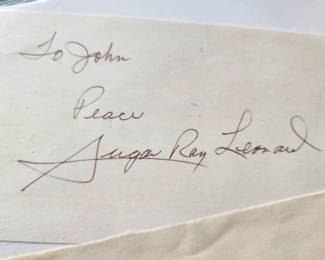 To John
Peace
Sugar Ray Leonard